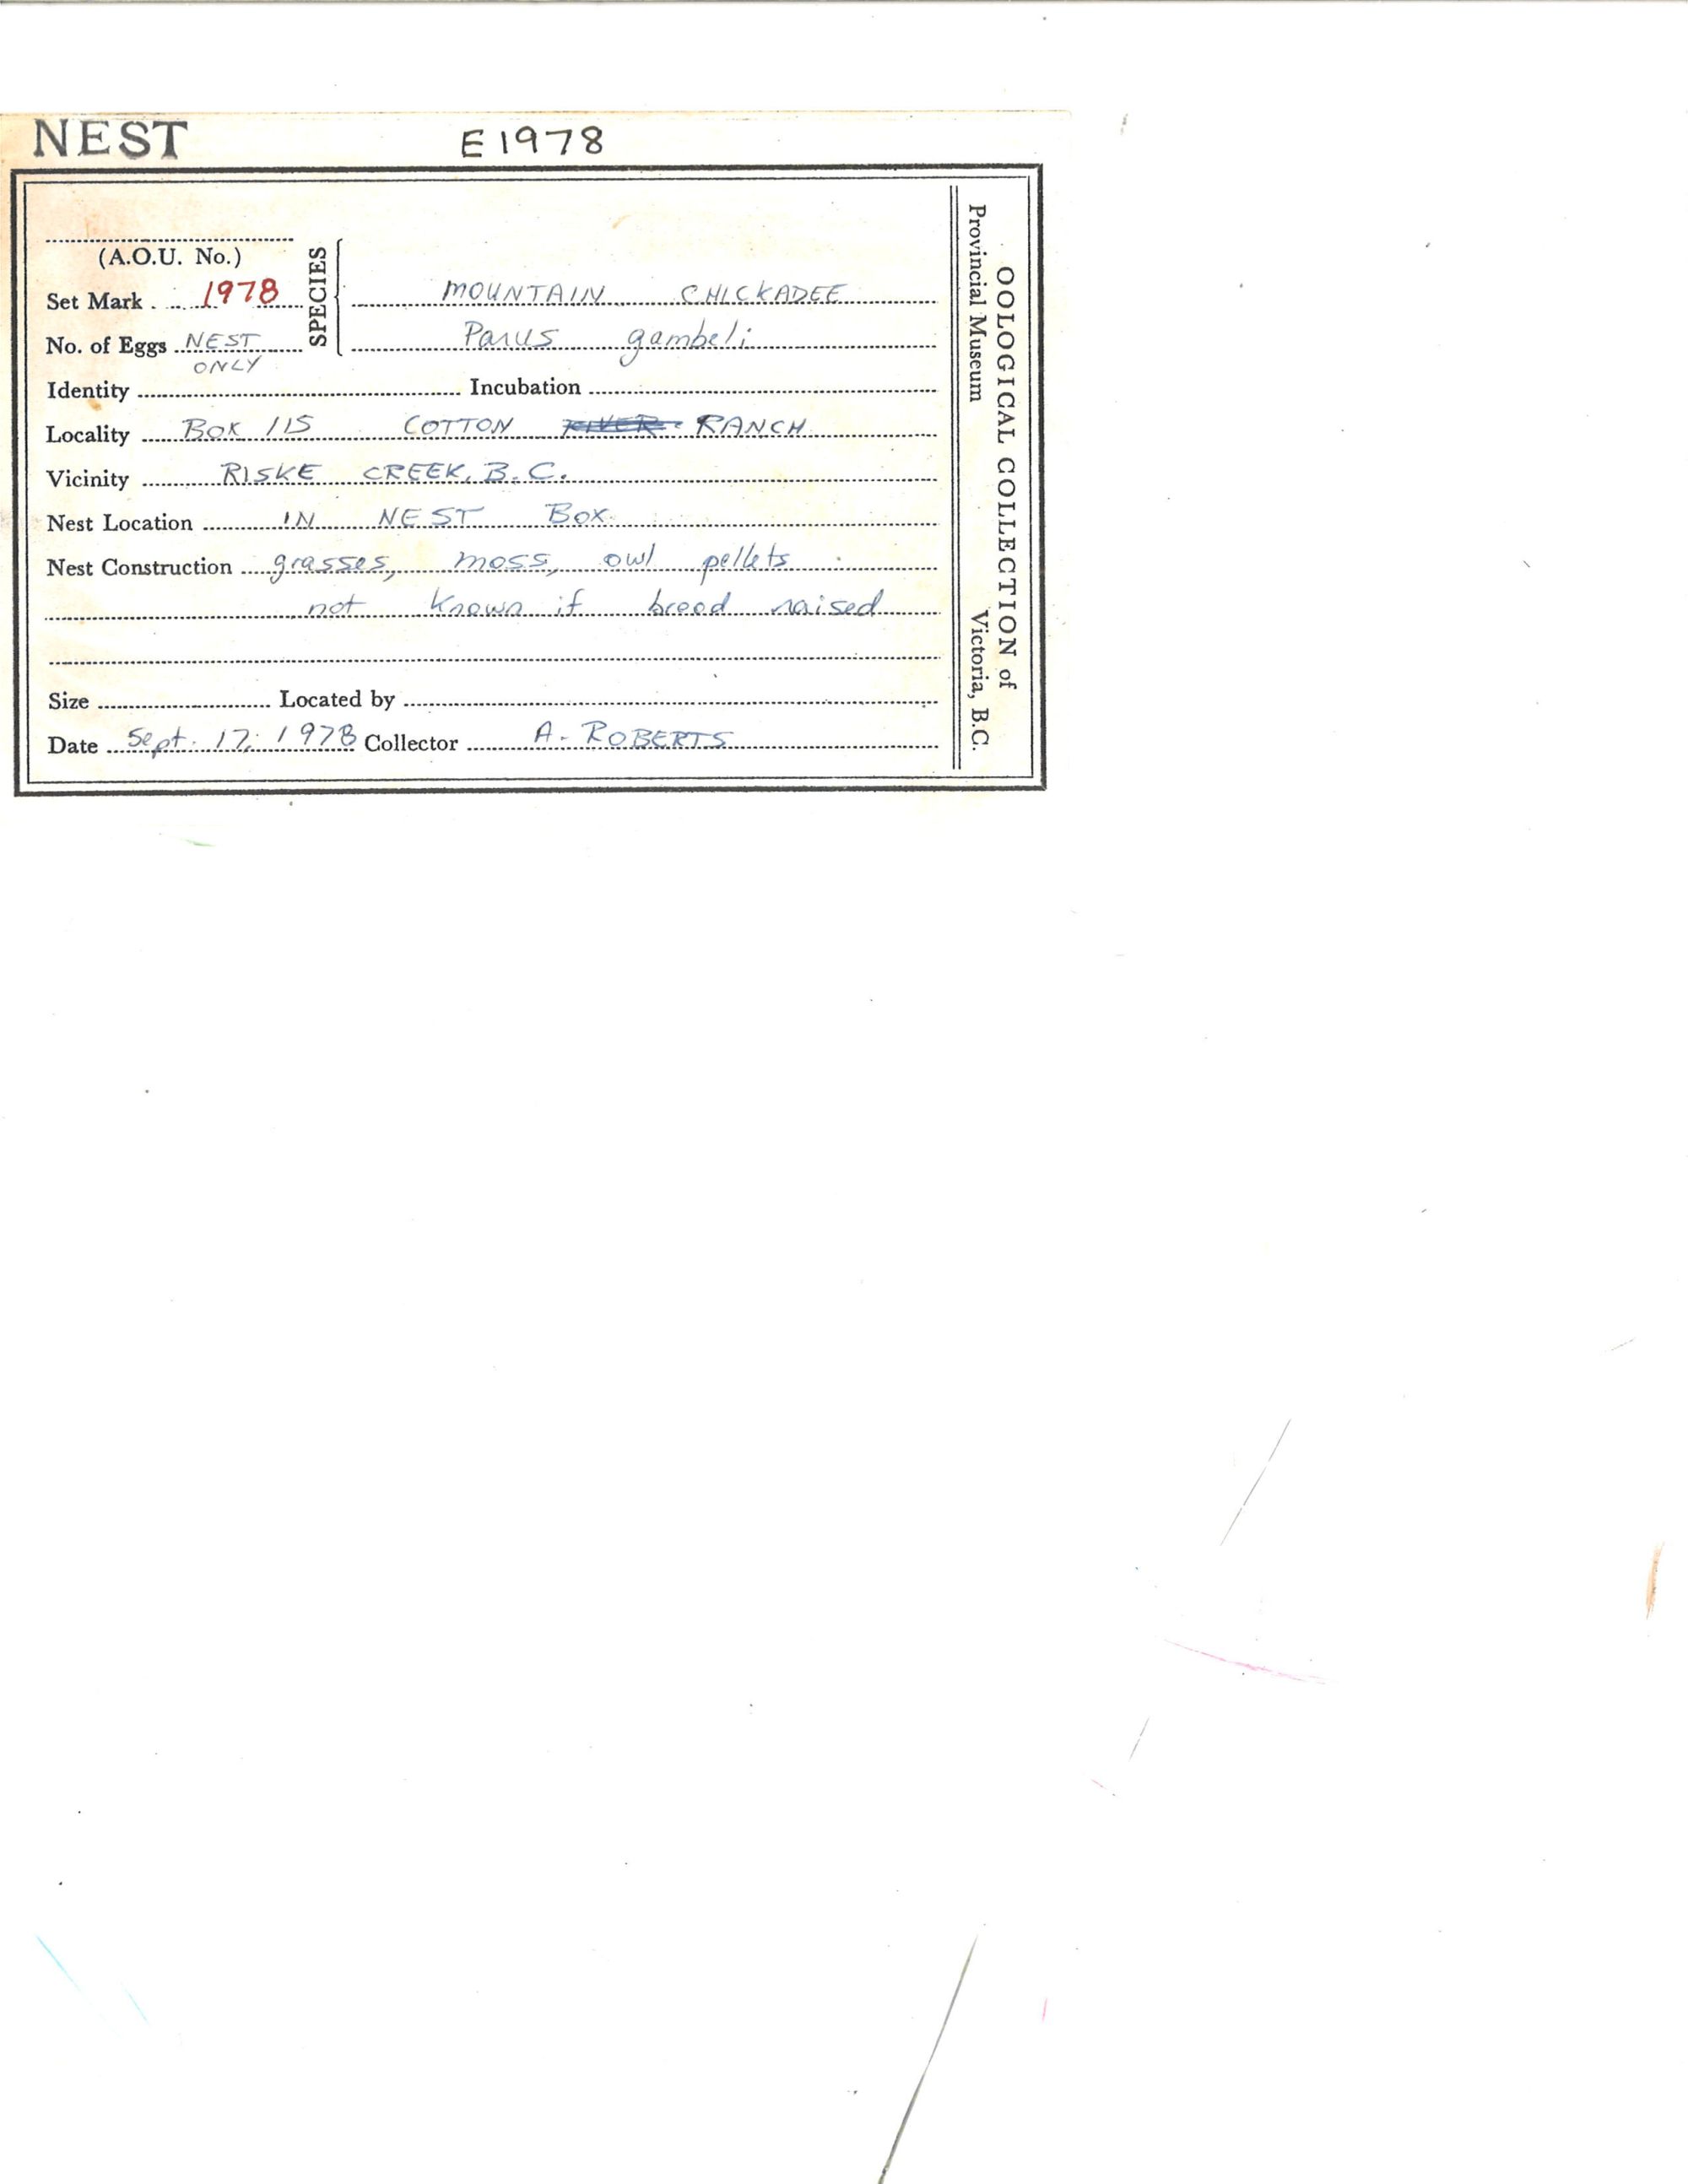 NEST E1978
(A.O.U. No.)
Set Mark 1978
SPECIES
MOUNTAIN CHICKADEE
No. of Eggs NEST ONLY
Parus gambeli
Identity Incubation
Locality BOX 115 COTTON RIVER RANCH
Vicinity RISKE CREEK, B.C.
Nest Location IN NEST BOX
Nest Construction grasses, moss, owl pellets
not known if brood raised
Size Located by
Date Sept. 17, 1978 Collector A. ROBERTS
OOLOGICAL COLLECTION of
Provincial Museum Victoria, B.C.